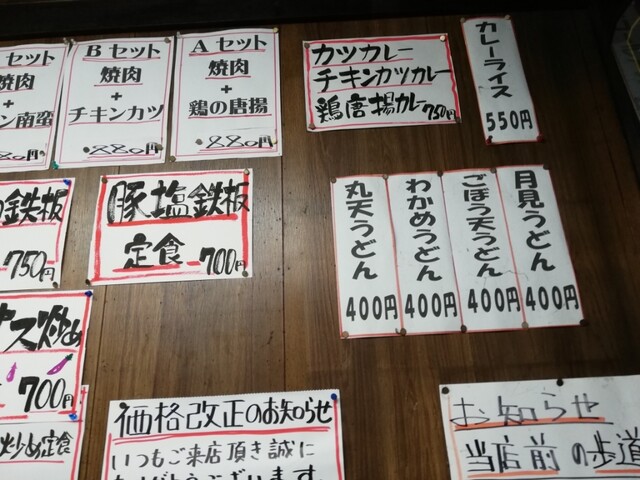 セット
焼肉
+
ン南蛮
Bセット
焼肉
+
チキンカツ
880円
Aセット
焼肉
+
鶏の唐揚
880円
カツカレー
チキンカツカレー
鶏唐揚カレー 750円
カレーライス
550円
鉄板
750円
豚塩鉄板
定食 700円
月見うどん
400円
ごぼう天うどん
400円
わかめうどん
400円
丸天うどん
400円
ナス炒め
700円
炒め定食
価格改正のお知らせ
いつもご来店頂き誠に
ありがとうございます
お知らせ
当店前の歩道